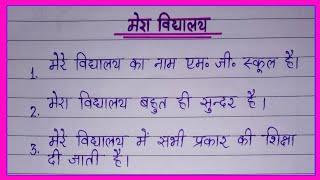 मेरा विद्यालय
1. मेरे विद्यालय का नाम एम॰ जी॰ स्कूल है।
2. मेरा विद्यालय बहुत ही सुन्दर है।
3. मेरे विद्यालय में सभी प्रकार की शिक्षा
दी जाती है।